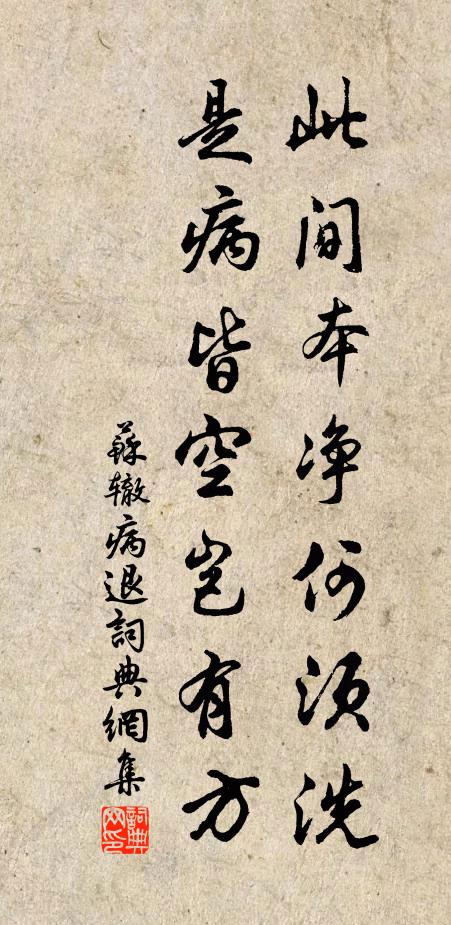 此间本净何须洗
是病皆空岂有方
蘇辙病退詞典網集
詞典网印